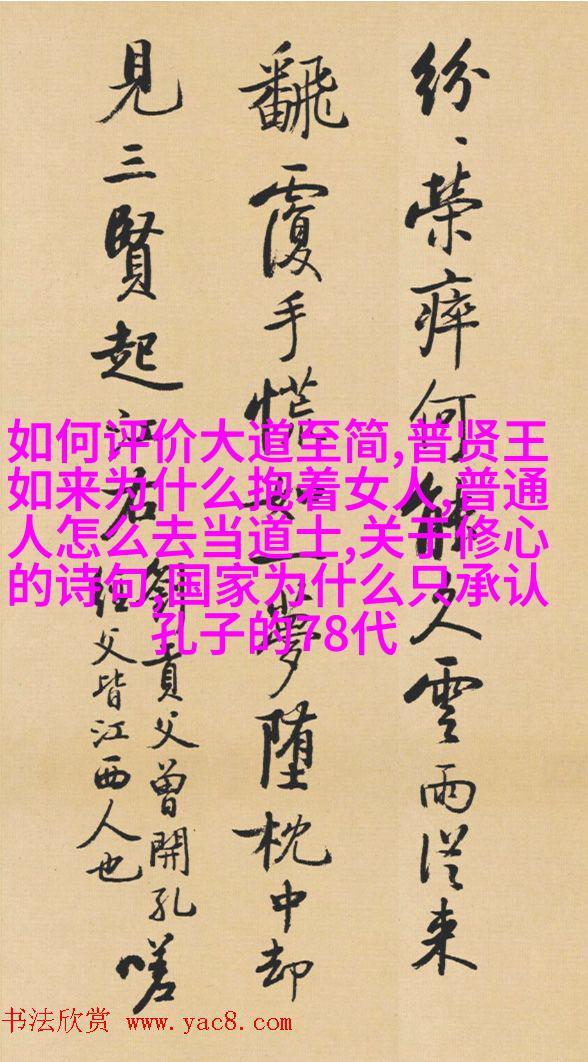 紛、榮瘁何能久雲雨從来
飜覆手慌如一夢墮枕中却
見三賢起江右
劉貢父曾開孔
經父皆江西人也
嗟
如何评价大道至简,普贤王
如来为什么抱着女人,普通
人怎么去当道士,关于修心
的诗句,国家为什么只承认
孔子的78代
书法欣赏 www.yac8.com